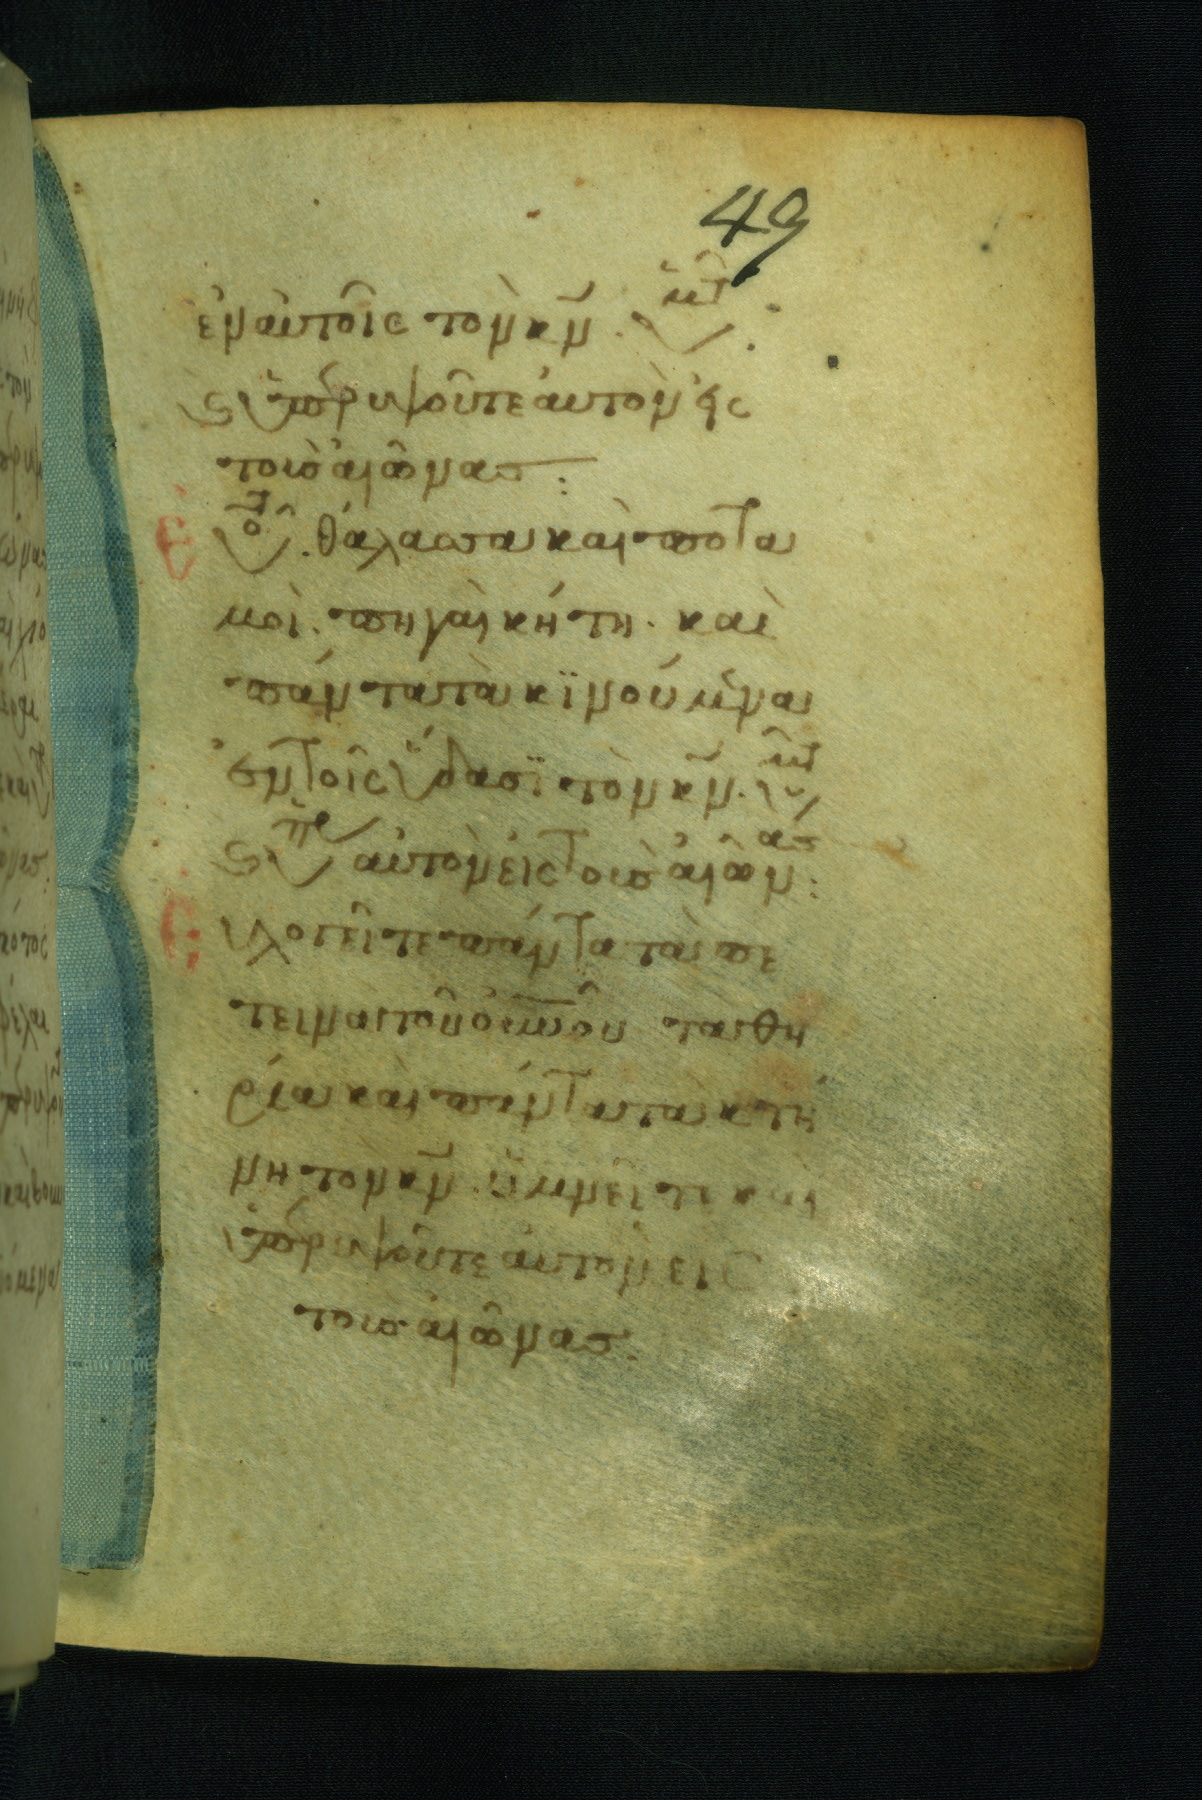 49
ἐν αὐτοῖς τὸν κν̄. ὑμτ̑:
ς ὑπερυψοῦτε αὐτὸν εἰς
τοὺς αἰῶνας:
Εὐο̑γ. θάλασσα καὶ ποτα
μοὶ. πηγαὶ κήτη. καὶ
πάντα τὰ κϊνούμενα
ἐν τοῖς ὕδασϊ τὸν κν̄. ὑμτ̑
ς ὑπ αὐτὸν εἰς τοὺς αἰῶνας:
Εὐλογεῖτε πάντα τὰ πε
τεινὰ τοῦ οὐνοῦ τὰ θη
ρία καὶ πάντα τὰ κτή
νη τὸν κν̄. ὑμνεῖτε καὶ
ὑπερυψοῦτε αὐτὸν εἰς
τοὺς αἰῶνας.